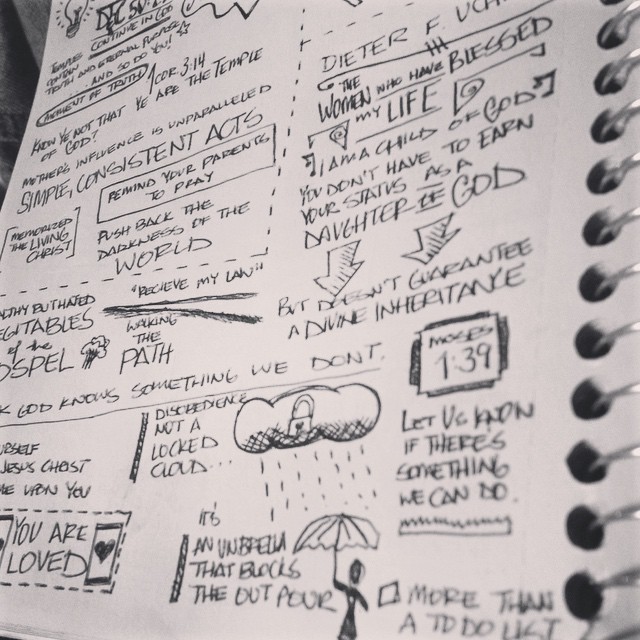 D&C 50:
CONTINUE IN GOD
TRUTH AND ETERNAL PURPOSE
AND SO DO YOU!
MOMENT OF TRUTH
1 COR. 3:14
KNOW YE NOT THAT YE ARE THE TEMPLE
OF GOD?
MOTHER'S INFLUENCE IS UNPARALLELED
SIMPLE, CONSISTENT ACTS
REMIND YOUR PARENTS
TO PRAY
MEMORIZED
THE LIVING
CHRIST
PUSH BACK THE
DARKNESS OF THE
WORLD
LTHY BUT HATED
EGITABLES
of the
OSPEL
"RECIEVE MY LAW"
WALKING
THE
PATH
GOD KNOWS SOMETHING WE DON'T.
URSELF
JESUS CHRIST
ME UPON YOU
YOU ARE
LOVED
DISOBEDIENCE
NOT A
LOCKED
CLOUD...
IT'S
AN UNBRELLA
THAT BLOCKS
THE OUT POUR
DIETER F. UCH
THE
WOMEN WHO HAVE BLESSED
MY LIFE
I AM A CHILD OF GOD
YOU DON'T HAVE TO EARN
YOUR STATUS AS A
DAUGHTER OF GOD
BUT DOESN'T GUARANTEE
A DIVINE INHERITANCE
MOSES
1:39
LET US KNOW
IF THERES
SOMETHING
WE CAN DO.
MORE THAN
A TO DO LIST